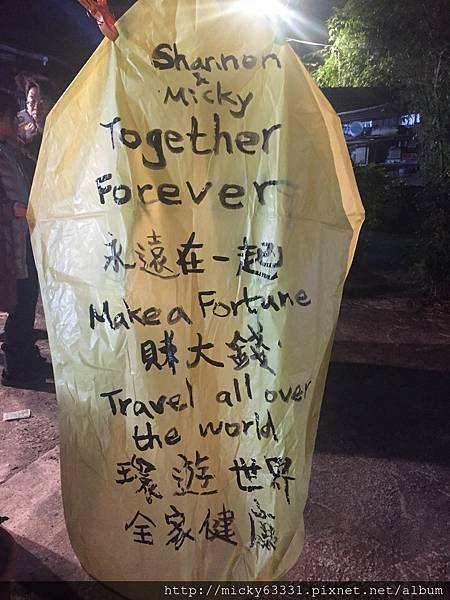 Shannon
x
Micky
Together
Forever
永遠在一起
Make a Fortune
賺大錢
Travel all over
the world
環遊世界
全家健康
http://micky63331.pixnet.net/album